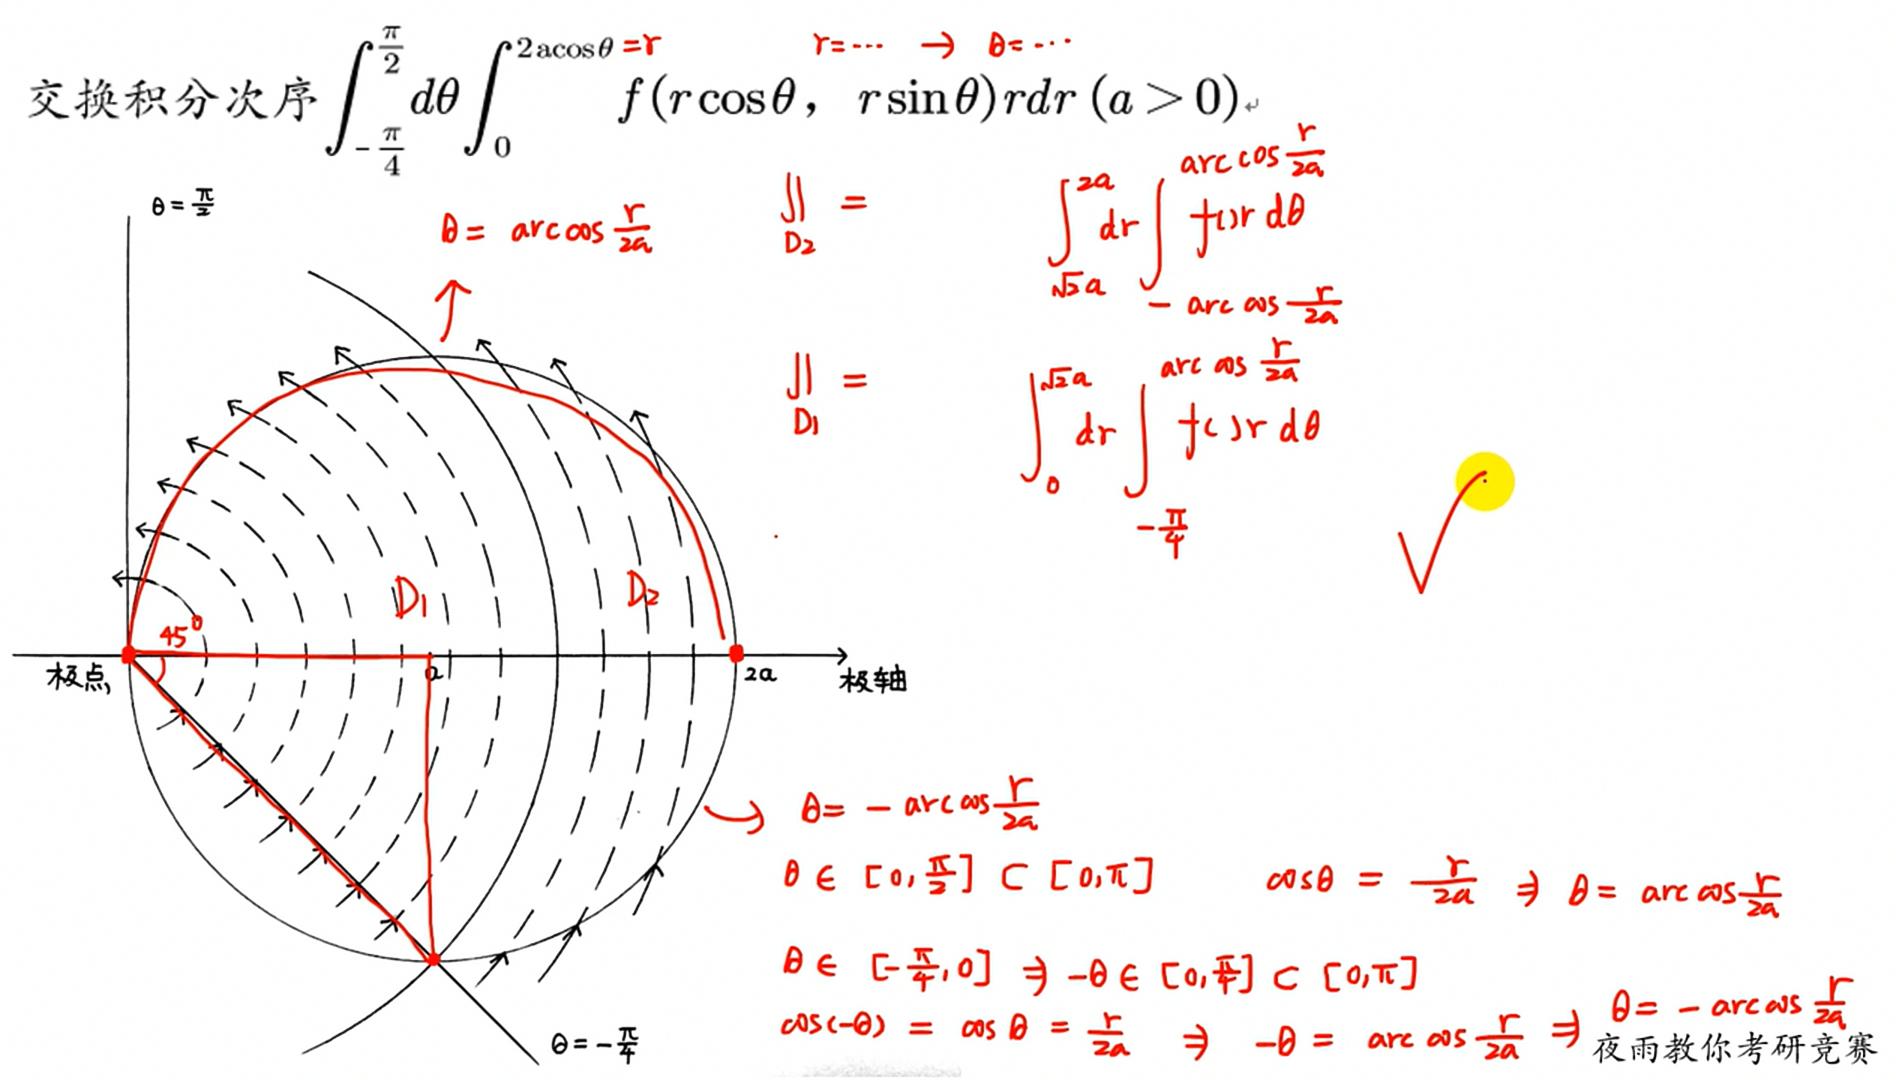 r=⋯ → θ=⋯
交换积分次序 ∫_{-π/4}^{π/2} dθ ∫_0^{2acosθ =r} f(rcosθ, rsinθ)rdr (a>0)
θ=π/2
θ= arccos r/2a
∬_{D2} = ∫_{√2a}^{2a} dr ∫_{-arccos r/2a}^{arccos r/2a} f()r dθ
∬_{D1} = ∫_0^{√2a} dr ∫_{-π/4}^{arccos r/2a} f()r dθ
D1 D2
45°
极点 a 2a 极轴
θ= - arccos r/2a
θ∈ [0, π/2] ⊂ [0, π] cosθ = r/2a ⇒ θ= arccos r/2a
θ∈ [-π/4, 0] ⇒ -θ∈ [0, π/4] ⊂ [0, π]
cos(-θ) = cosθ = r/2a ⇒ -θ = arccos r/2a ⇒ θ= - arccos r/2a
θ=-π/4
夜雨教你考研竞赛